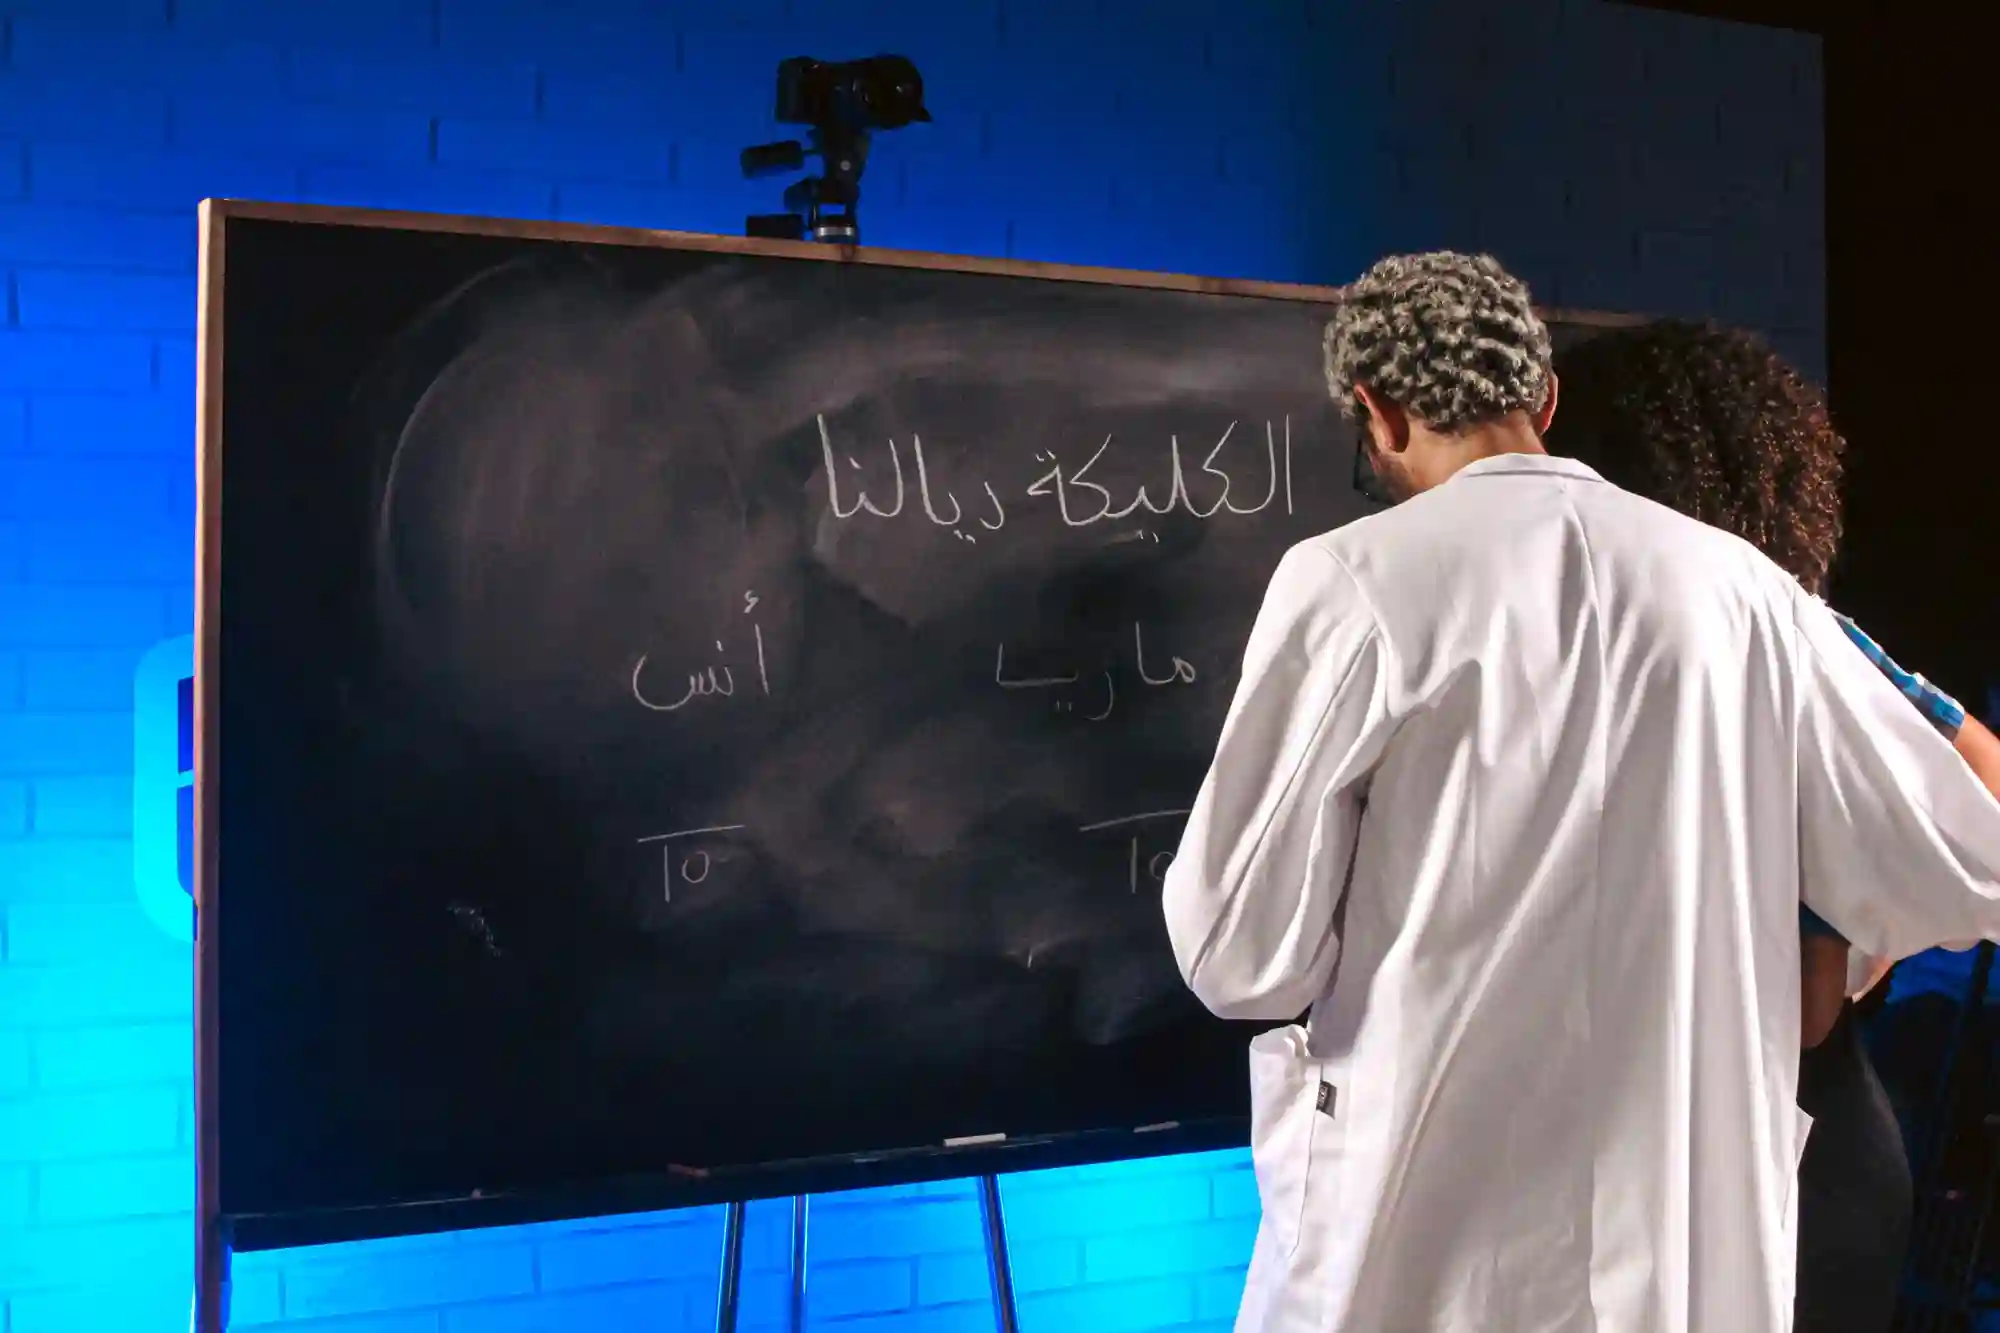 الكليكة ديالنا
ماريا أنس
10 10